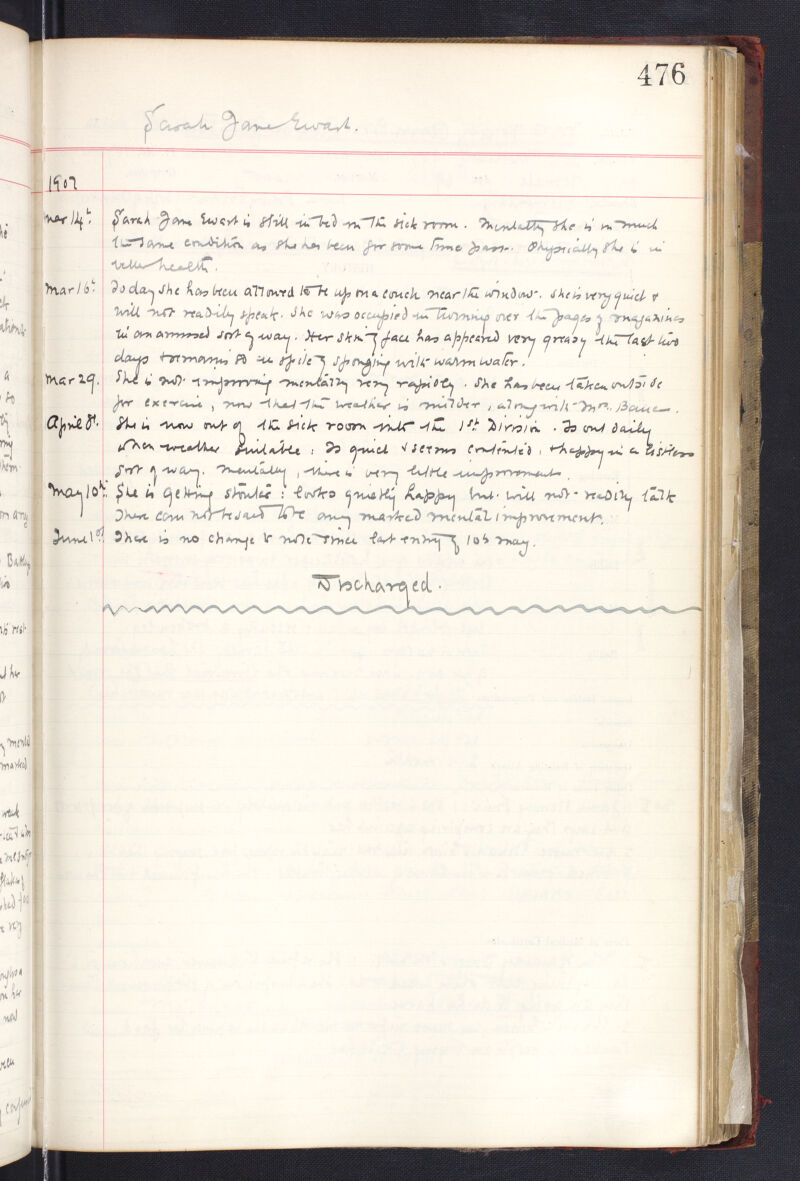 476
Sarah Jane Ewart.
1907
Mar 14th Sarah Jane Ewart is still in bed in the sick room. Mentally she is in much
the same condition as she has been for some time past. Physically she is in
better health.
Mar 16th Today she has been allowed to be up on a couch near the window. She is very quiet &
will not readily speak. She was occupied in turning over the pages of magazines
in an amused sort of way. Her skin of face has appeared very greasy the last two
days & remains so in spite of sponging with warm water.
Mar 29. She is not improving mentally very rapidly. She has been taken outside
for exercise, now that the weather is milder, along with Mrs.
April 8th. She is now out of the sick room into the 1st Division. Is out daily
when weather suitable; Is quiet & seems contented, & happy in a listless
sort of way. Mentally, there is very little improvement.
May 10th. She is getting stouter: looks quietly happy but will not readily talk
There can not be said to be any marked mental improvement.
June 1st There is no change to note since last entry of 10th May.
Discharged.